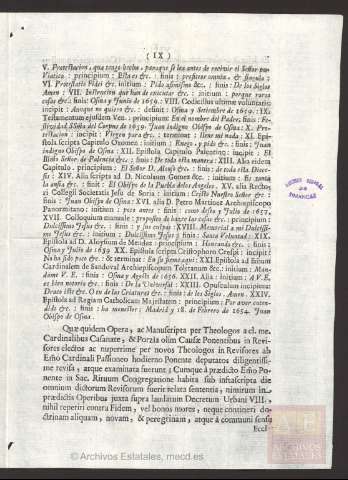 ( IX )
V. Protestacion, que tengo hecha, paraque se lea antes de recivir el Señor por
Viatico: principium: Esta es &c. finis: profiteor omnia, & singula:
VI. Protestatio Fidei &c. initium: Pido assimismo &c. finis: De los Siglos
Amen: VII. Instruccion que han de executar &c. initium: porque varas
cosas &c. finis: Osma y Junio de 1659. VIII. Codicillus ultimæ voluntatis:
incipit: Aunque no quiero &c. desinit: Osma y Setiembre de 1659. IX.
Testamentum ejusdem Ven. principium: En el nombre del Padre, finis: Fe-
stividad del Corpus de 1659. Juan indigno Obispo de Osma: X. Pro-
testacion: incipit: Virgen para &c. terminat: llene mi nada: XI. Epi-
stola scripta Capitulo Oxomen: initium: Ruego, y pido &c. finis: Juan
indigno Obispo de Osma: XII. Epistola Capitulo Palentino; incipit: El
Señor de Palencia &c. finis: De toda esta manera: XIII. Alia eidem
Capitulo, principium: El Señor D. &c. finis: de toda esta Dioce-
sis: XIV. Alia scripta ad D. Nicolaum Gomes &c. initium: Es tanta
la ansia &c. finit: El Obispo de la Puebla de los Angeles. XV. alia Recto-
ri Collegii Societatis Jesu de Soria: initium: Cristo Nuestro Señor &c.
finis: Juan Obispo de Osma: XVI. alia D. Petro Martinez Archiepiscopo
Panormitano; initium: poco antes: finis: como desseo y Julio de 1657.
XVII. Colloquium manuale: proposito de hazer las cosas &c. principium:
Dulcissimo Jesus &c. finis: y sea culpa: XVIII. Memorial a mi Dulcissi-
mo Jesus &c. initium: Dulcissimo Jesus y finis: Santa Voluntad. XIX.
Epistola ad D. Aloysium de Mendez: principium: &c. finis:
Osma y Julio de 1659 XX. Epistola scripta Cristophoro Crespi: incipit:
No ha sido poco &c. & terminat: En fin somos aqui: XXI. Epistola ad
Cardinalem de Sandoval Archiepiscopum Toletanum &c. initium: Man-
dame V. E. finis: Osma y Agosto de 1656. XXII. Alia: initium: A V. E.
es bien notorio &c. finis: De la Universal: XXIII. Opusculum incipiens:
este &c. O tu de las Criaturas &c. finis: de los Siglos. Amen. XXIV.
Epistola ad Regiam Catholicam Majestatem: principium: Por aver enten-
dido &c. finis: ha menester: Madrid y 18. de Febrero de 1654. Juan
Obispo de Osma.
Quæ quidem Opera, ac Manuscripta per Theologos a cl. me.
Cardinalibus Casanate, & Portia olim Causæ Ponentibus in Revi-
sores electos ac nuperrime per novos Theologos in Revisores ab
Emo Cardinali Passioneo hodierno Ponente deputatos diligentissi-
me revisa, atque examinata fuerunt; Cumque à prædicto Emo Po-
nente in Sac. Rituum Congregatione habita sub infrascripta die
omnium dictorum Revisorum fuerit relata sententia, nimirum in
prædictis Operibus juxta supra laudatum Decretum Urbani VIII.
nihil reperiri contra Fidem, vel bonos mores, neque contineri do-
ctrinam aliquam, novam, & peregrinam, atque à communi sensu
Eccl-
© Archivos Estatales, mecd.es